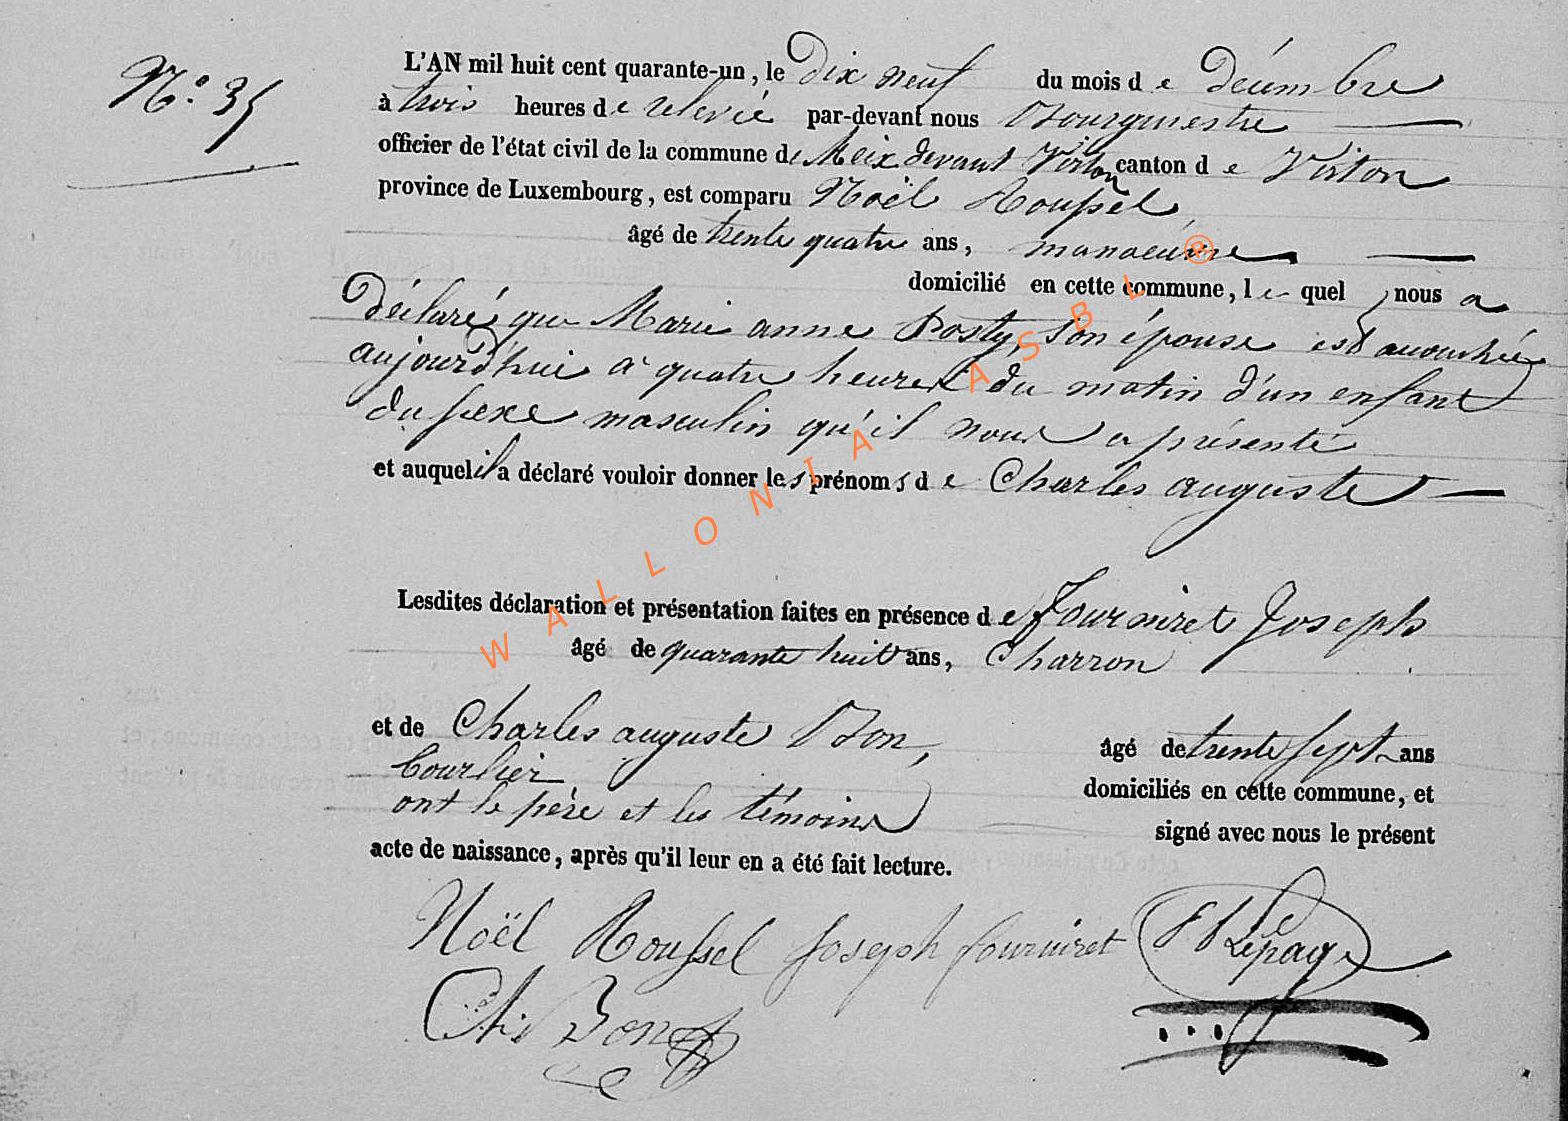 N.° 35
L'AN mil huit cent quarante-un, le Dix neuf du mois de Décembre
à trois heures de relevée par-devant nous Bourgmestre
officier de l'état civil de la commune de Meix devant Virton canton de Virton
province de Luxembourg, est comparu Noël Roussel,
âgé de trente quatre ans, manoeuvre
domicilié en cette commune, lequel nous a
Déclaré que Marie anne Posty, son épouse est accouchée
aujourd'hui à quatre heures du matin d'un enfant
du sexe masculin qu'il nous a présenté
et auquel il a déclaré vouloir donner les prénoms de Charles auguste
Lesdites déclaration et présentation faites en présence de Fourniret Joseph
âgé de quarante huit ans, Charron
et de Charles auguste Bon, âgé de trente sept ans
Courlier domiciliés en cette commune, et
ont le père et les témoins signé avec nous le présent
acte de naissance, après qu'il leur en a été fait lecture.
Noël Roussel Joseph fourniret Lepage
Chs Bon
WALLONIA ASBL ®